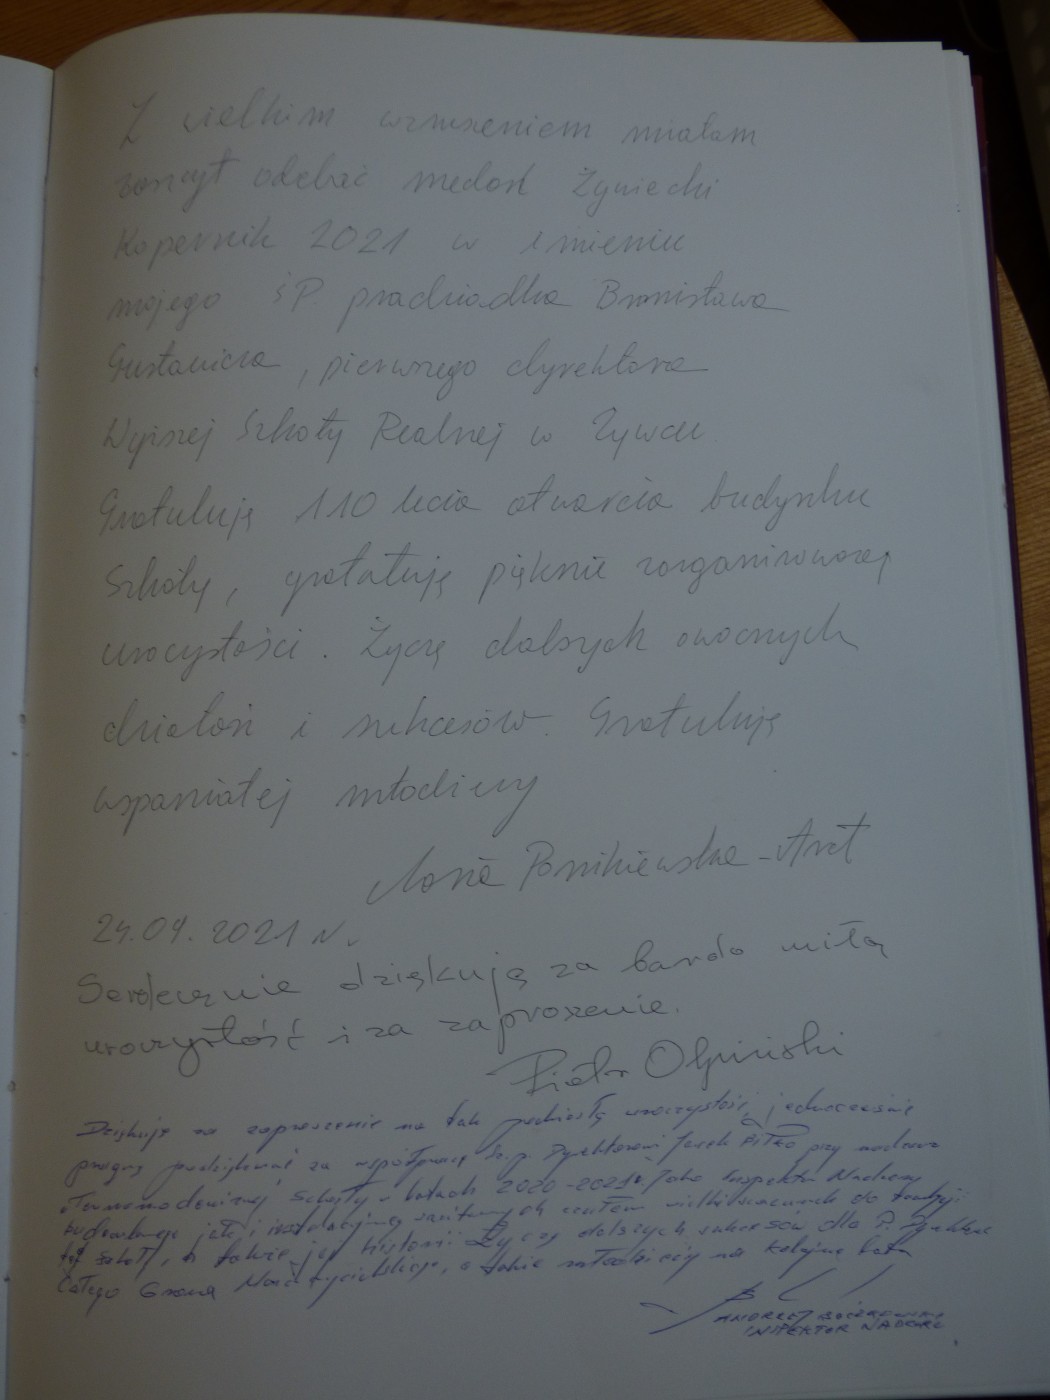 Z wielkim wzruszeniem miałam
zaszczyt odebrać medal Żywiecki
Kopernik 2021 w imieniu
mojego ŚP. pradziadka Bronisława
Gustawicza, pierwszego dyrektora
Wyższej Szkoły Realnej w Żywcu
Gratuluję 110 lecia otwarcia budynku
Szkoły, gratuluję pięknie zorganizowanej
uroczystości. Życzę dalszych owocnych
działań i sukcesów. Gratuluję
wspaniałej młodzieży
Ponikiewska-Arzt
24.09.2021 r.
Serdecznie dziękuję za bardo miłą
uroczystość i za zaproszenie.
Piotr
Dziękuję za zaproszenie na tak podniosłą uroczystość, jednocześnie
pragnę podziękować za współpracę dyrektorowi Jacek przy nadzorze
Szkoły w latach 2020-2021. Jako Inspektor Nadzoru
budowlanego i instalacyjnej sanitarnych do tradycji
tej szkoły, a także jej historii. Życzę dalszych sukcesów dla P. Dyrektora
Całego Grona Nauczycielskiego, a także młodzieży na kolejne lata
ANDRZEJ
INSPEKTOR NADZORU